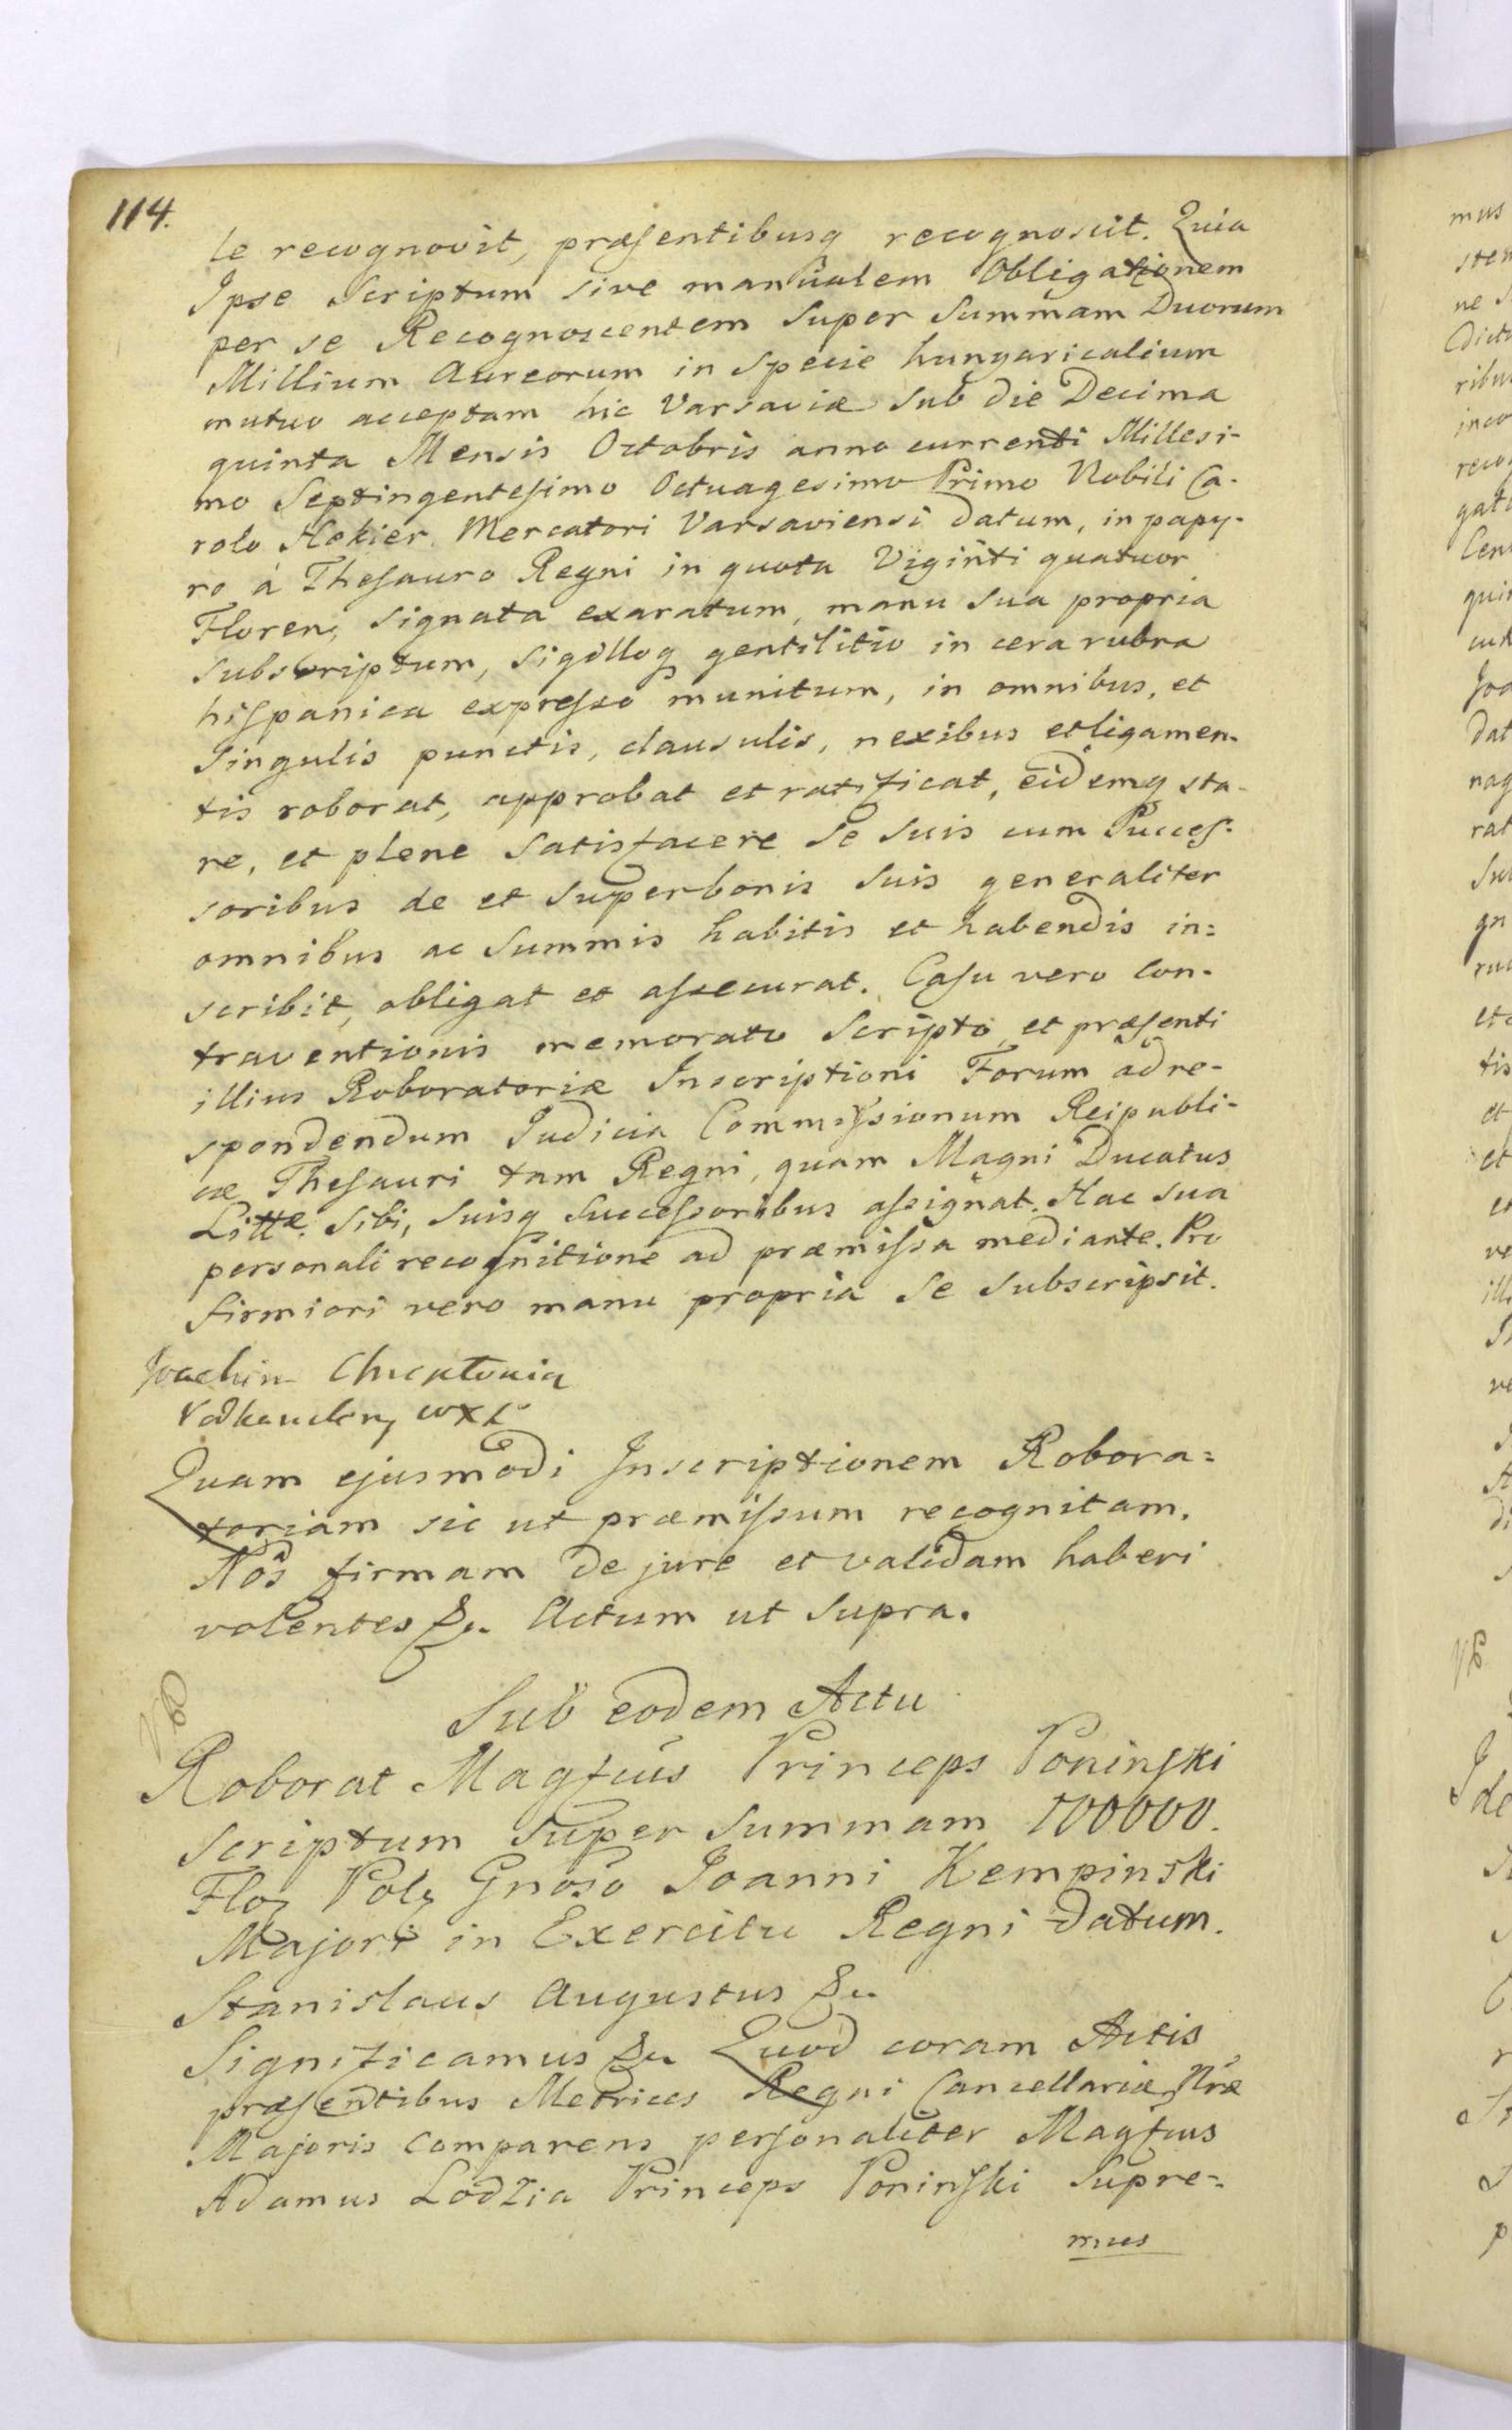 114.
le recognovit, præsentibusq recognoscit. Quia
Ipse Scriptum sive manualem Obligationem
per se Recognoscentem Super Summam Duorum
Millium Aureorum in Specie hungaricalium
mutuo acceptam hic Varsaviæ Sub die Decima
quinta Mensis Octobris anno currenti Millesi-
mo Septingentesimo Octuagesimo Primo Nobili Ca-
rolo Hekier Mercatori Varsaviensi datum, in papy-
ro á Thesauro Regni in quota Viginti quatuor
Floren, signata exaratum, manu sua propria
subscriptum, sigilloq gentilitio in cera rubra
hispanica expresso munitum, in omnibus, et
Singulis punctis, clausulis, nexibus et ligamen-
tis roborat, approbat et ratificat, eidemq sta-
re, et plene satisfacere Se Suis cum Succes-
soribus de et super bonis suis generaliter
omnibus ac Summis habitis et habendis in=
scribit, obligat et assecurat. Casu vero Con-
traventionis memorato Scripto, et præsenti
illius Roboratoriæ Inscriptioni Forum ad re-
spondendum Judicia Commissionum Reipubli-
cæ Thesauri tam Regni, quam Magni Ducatus
Littæ. Sibi, Suisq Successoribus assignat. Hac sua
personali recognitione ad præmissa mediante. Pro
firmiori vero manu propria se subscripsit.
Joachim
WXL
Quam ejusmodi Inscriptionem Robora=
toriam sic ut præmissum recognitam.
Nos firmam de jure et validam haberi
volentes &c. Actum ut supra.
Sub eodem Actu
Roborat Magfcus Princeps Poninski
scriptum super summam 100000.
Flor Pol, Gnoso Joanni Kempinski
Majori in Exercitu Regni datum.
Stanislaus Augustus &c.
Significamus &c. Quod coram Actis
præsentibus Metrices Regni Cancellariæ Nræ
Majoris comparens personaliter Magfcus
Adamus Lodzia Princeps Poninski Supre=
mus